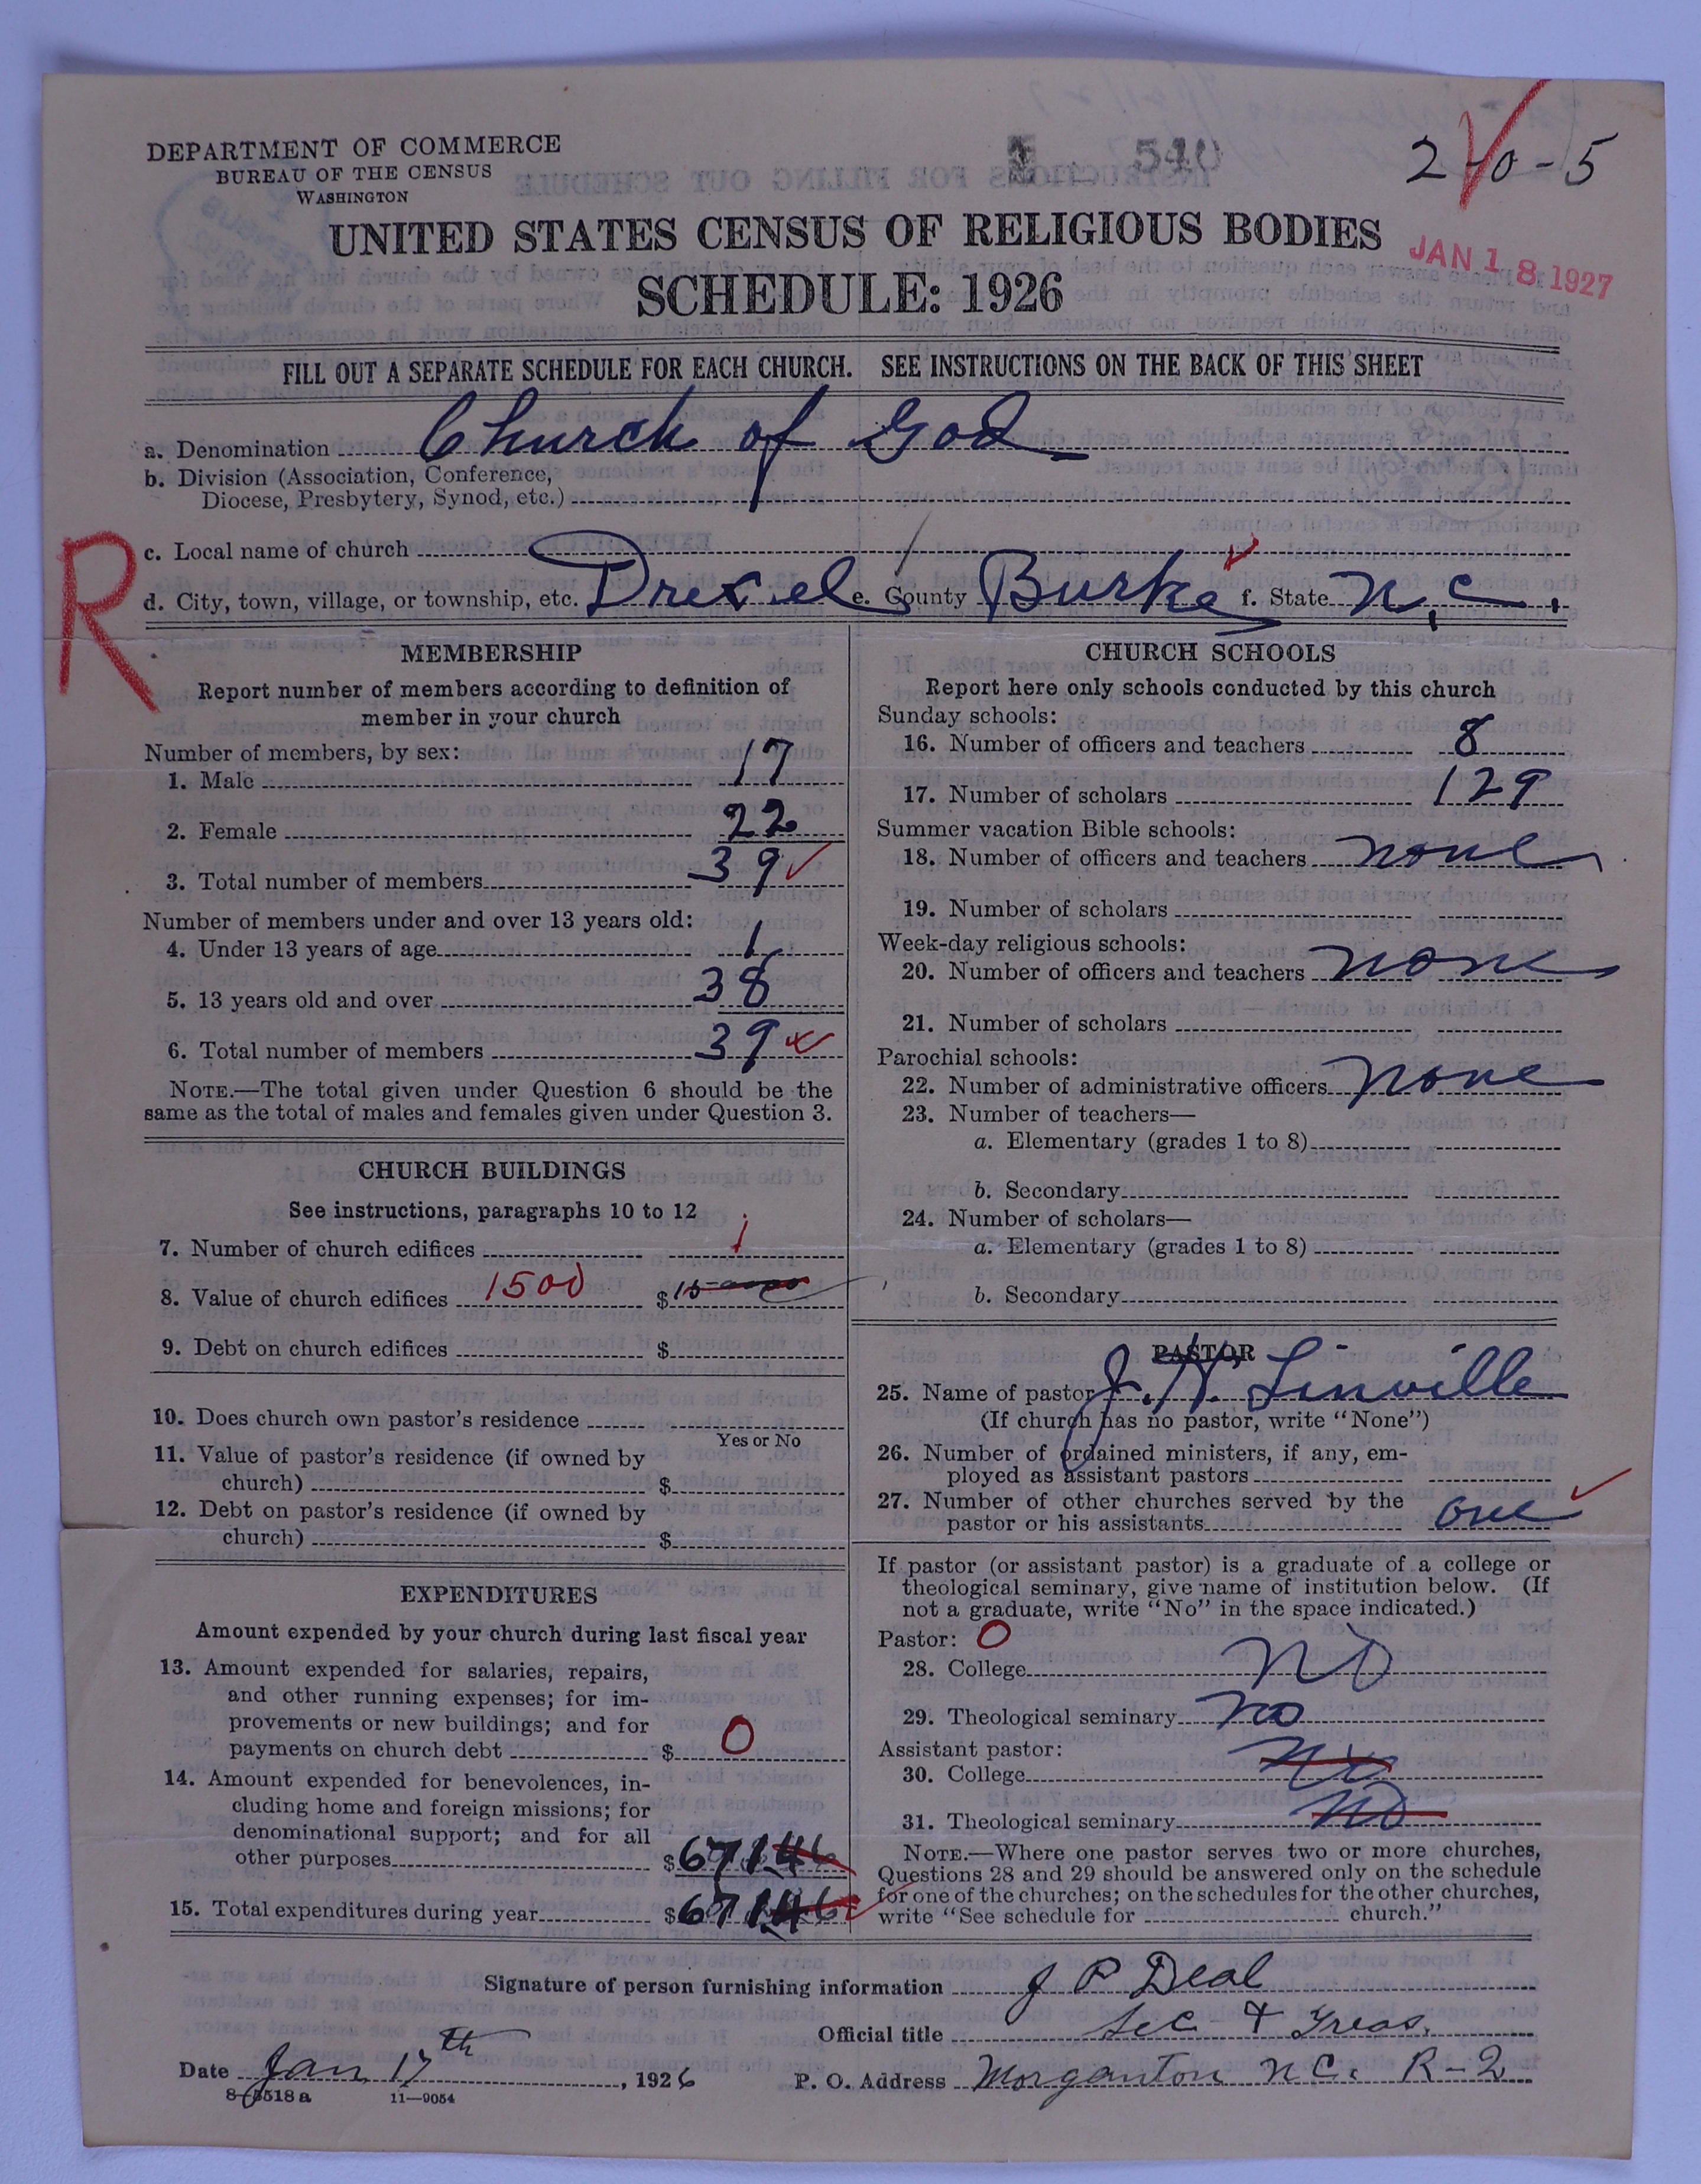 DEPARTMENT OF COMMERCE
BUREAU OF THE CENSUS
WASHINGTON
1 540
2-0-5
UNITED STATES CENSUS OF RELIGIOUS BODIES
SCHEDULE: 1926
JAN 18 1927
FILL OUT A SEPARATE SCHEDULE FOR EACH CHURCH. SEE INSTRUCTIONS ON THE BACK OF THIS SHEET
a. Denomination Church of God
b. Division (Association, Conference,
Diocese, Presbytery, Synod, etc.)
R
c. Local name of church
d. City, town, village, or township, etc. Drexel e. County Burke f. State N.C.
MEMBERSHIP
Report number of members according to definition of
member in your church
Number of members, by sex:
1. Male 17
2. Female 22
3. Total number of members 39
Number of members under and over 13 years old:
4. Under 13 years of age 1
5. 13 years old and over 38
6. Total number of members 39
NOTE.—The total given under Question 6 should be the
same as the total of males and females given under Question 3.
CHURCH BUILDINGS
See instructions, paragraphs 10 to 12
7. Number of church edifices 1
8. Value of church edifices 1500 $
9. Debt on church edifices $
10. Does church own pastor's residence
Yes or No
11. Value of pastor's residence (if owned by
church) $
12. Debt on pastor's residence (if owned by
church) $
EXPENDITURES
Amount expended by your church during last fiscal year
13. Amount expended for salaries, repairs,
and other running expenses; for im-
provements or new buildings; and for
payments on church debt $ 0
14. Amount expended for benevolences, in-
cluding home and foreign missions; for
denominational support; and for all
other purposes $671 46
15. Total expenditures during year $671 46
CHURCH SCHOOLS
Report here only schools conducted by this church
Sunday schools:
16. Number of officers and teachers 8
17. Number of scholars 129
Summer vacation Bible schools:
18. Number of officers and teachers none
19. Number of scholars
Week-day religious schools:
20. Number of officers and teachers none
21. Number of scholars
Parochial schools:
22. Number of administrative officers none
23. Number of teachers—
a. Elementary (grades 1 to 8)
b. Secondary
24. Number of scholars—
a. Elementary (grades 1 to 8)
b. Secondary
PASTOR
25. Name of pastor J. H. Linville
(If church has no pastor, write "None")
26. Number of ordained ministers, if any, em-
ployed as assistant pastors
27. Number of other churches served by the
pastor or his assistants one
If pastor (or assistant pastor) is a graduate of a college or
theological seminary, give name of institution below. (If
not a graduate, write "No" in the space indicated.)
Pastor: 0
28. College no
29. Theological seminary no
Assistant pastor:
30. College no
31. Theological seminary no
NOTE.—Where one pastor serves two or more churches,
Questions 28 and 29 should be answered only on the schedule
for one of the churches; on the schedules for the other churches,
write "See schedule for church."
Signature of person furnishing information J P Deal
Official title Sec & Treas.
Date Jan 17th, 1926
P. O. Address Morganton N.C. R-2
8-5518a 11-9054